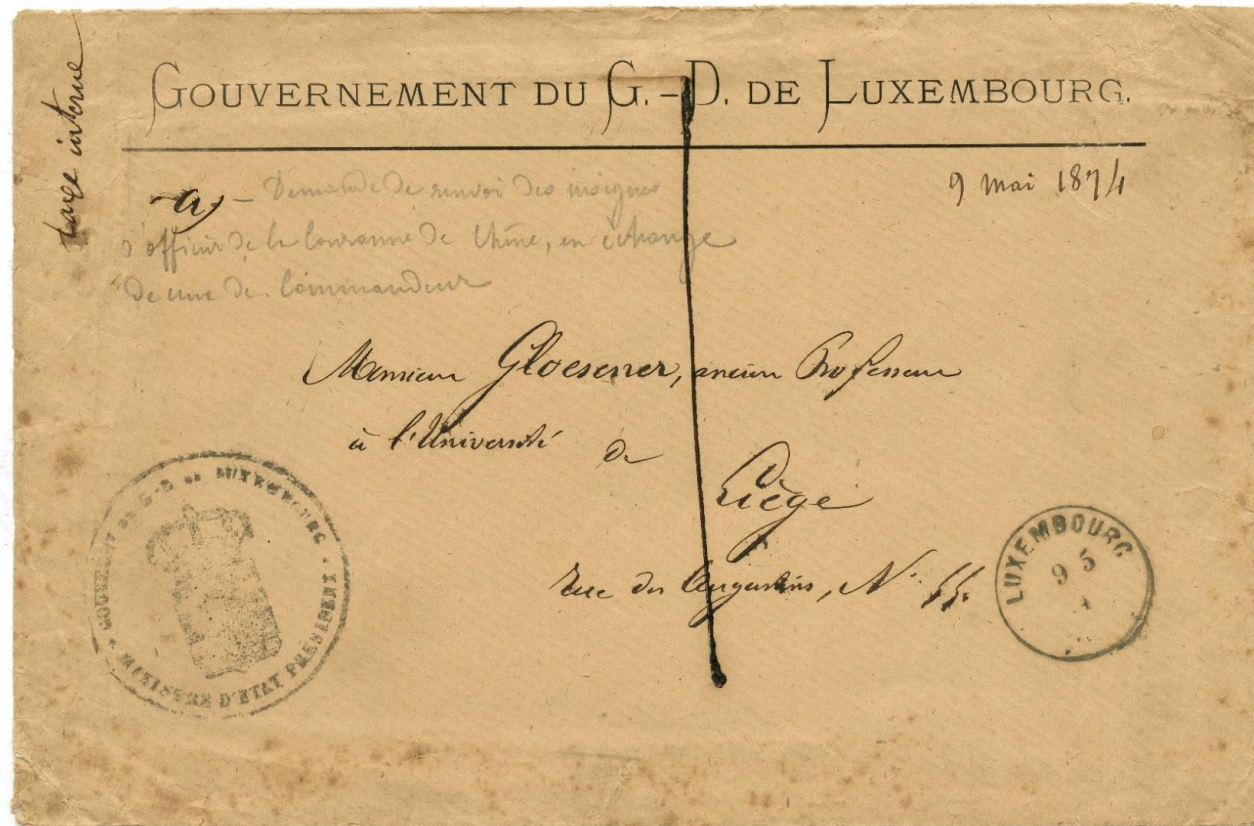 taxe interne
GOUVERNEMENT DU G.-D. DE LUXEMBOURG.
9 mai 1874
a) – Demande de renvoi des insignes
d'officier de la Couronne de Chêne, en échange
de ceux de Commandeur
Monsieur Gloesener, ancien Professeur
à l'Université de
Liège
rue des Augustins, N° 55.
GOUVERNEMT DU G-D DE LUXEMBOURG
MINISTRE D'ETAT PRESIDENT
LUXEMBOURG
9 5